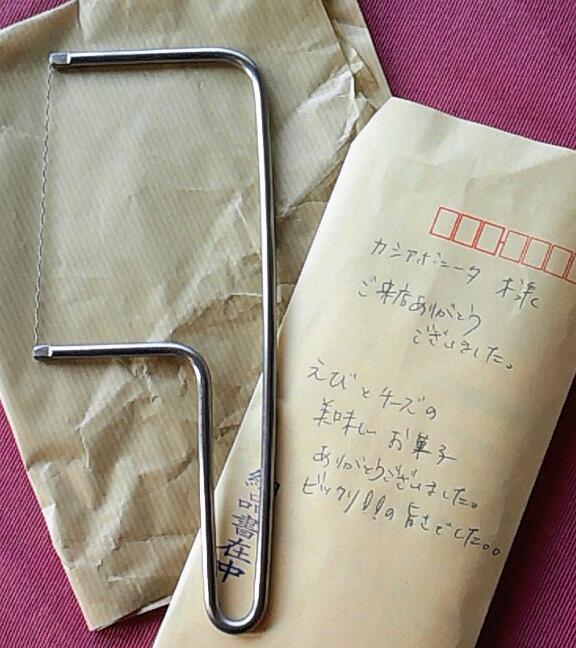 カシアボニータ 様
ご来店ありがとう
ございました。
えびとチーズの
美味しいお菓子
ありがとうございました。
ビックリ!!の旨さでした。。
納品書在中